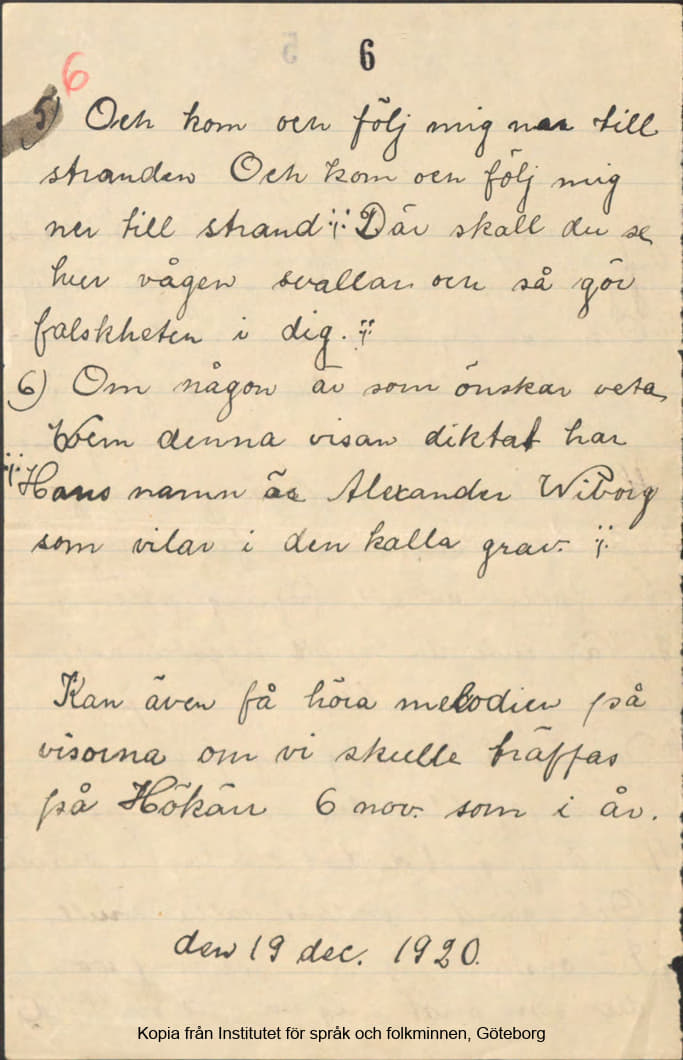 6 6
5) Och kom och följ mig ner till
stranden Och kom och följ mig
ner till strand :/: Där skall du se
hur vågen svallar och så gör
falskheten i dig. :/:
6) Om någon är som önskar veta
Wem denna visan diktat har
:/: Hans namn är Alexander Wiborg
som vilar i den kalla grav. :/:
Kan även få höra melodien på
visorna om vi skulle träffas
på Hökärr 6 nov. som i år.
den 19 dec. 1920.
Kopia från Institutet för språk och folkminnen, Göteborg